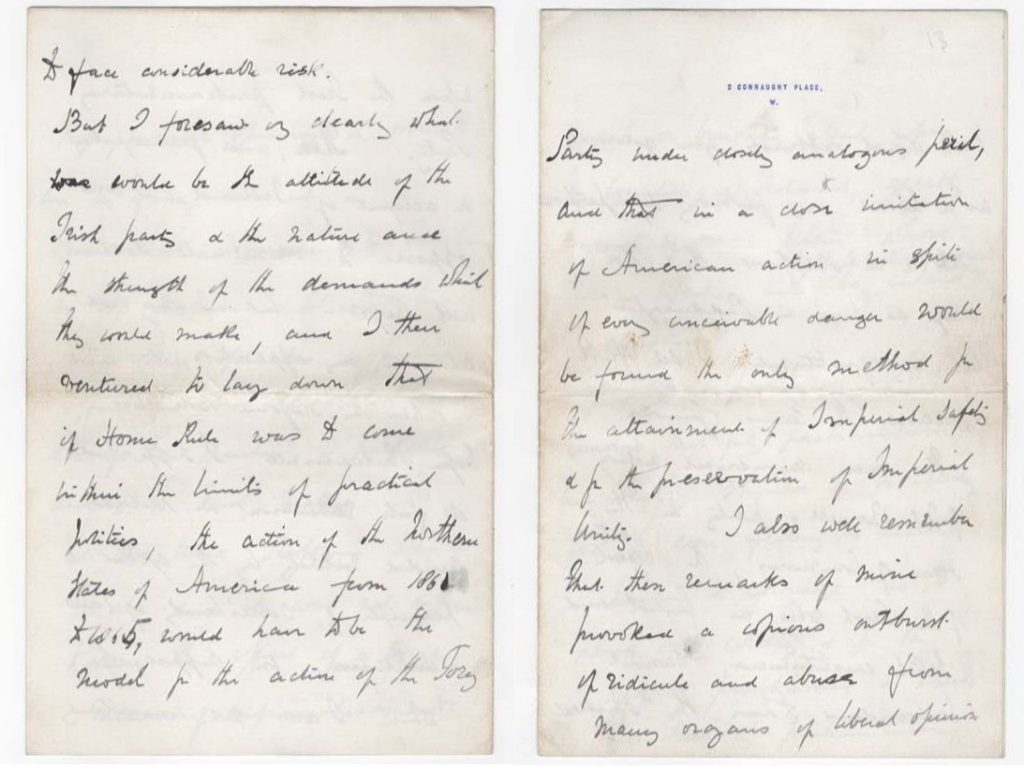 to face considerable risk.
But I foresaw vy clearly what
was would be the attitude of the
Irish party & the nature and
the strength of the demands which
they would make, and I then
ventured to lay down that
if Home Rule was to come
within the limits of practical
politics, the action of the Northern
States of America from 1861
to 1865, would have to be the
model for the action of the Tory
13
2 CONNAUGHT PLACE,
W.
Party under closely analogous peril,
and that in a close imitation
of American action in spite
of every conceivable danger would
be found the only method for
the attainment of Imperial Safety
& for the preservation of Imperial
Unity. I also well remember
that these remarks of mine
provoked a copious outburst
of ridicule and abuse from
many organs of liberal opinion